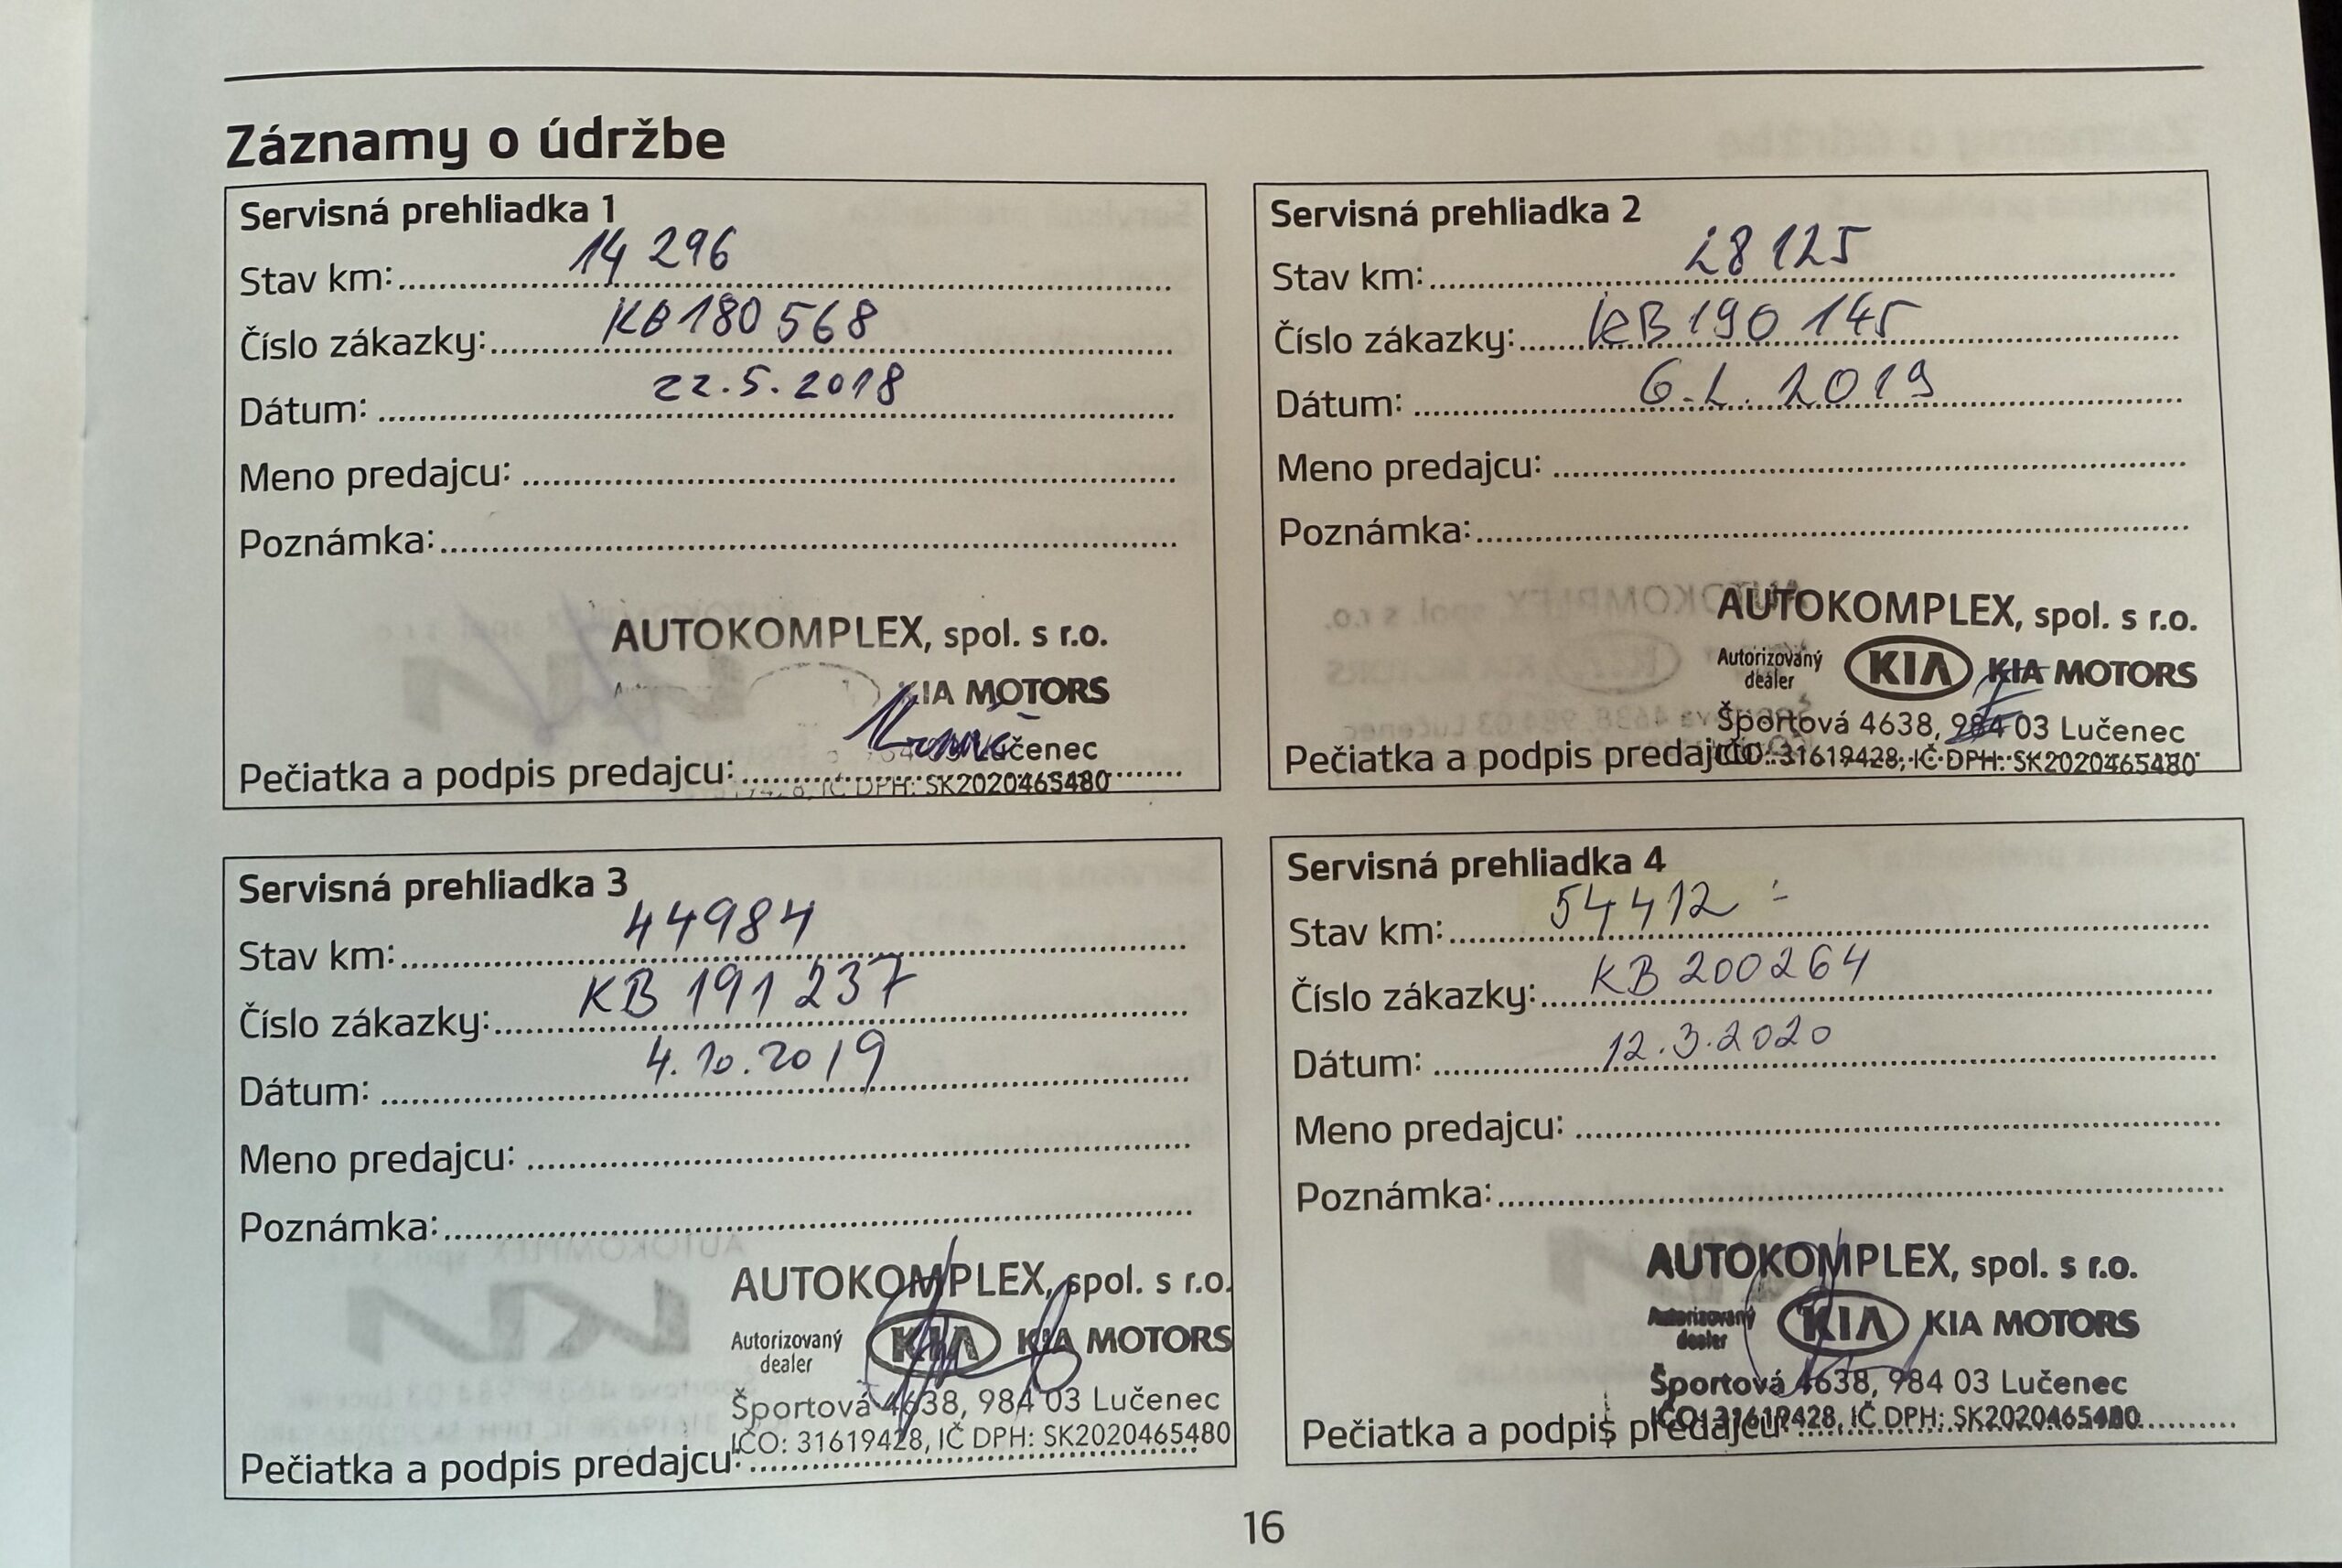 Záznamy o údržbe
Servisná prehliadka 1
Stav km: 14 296
Číslo zákazky: KB180 568
Dátum: 22.5.2018
Meno predajcu:
Poznámka:
AUTOKOMPLEX, spol. s r.o.
KIA MOTORS
Lučenec
Pečiatka a podpis predajcu:
IČ DPH: SK2020465480
Servisná prehliadka 2
Stav km: 28 125
Číslo zákazky: KB 190 145
Dátum: 6.2.2019
Meno predajcu:
Poznámka:
AUTOKOMPLEX, spol. s r.o.
Autorizovaný dealer KIA KIA MOTORS
Športová 4638, 984 03 Lučenec
Pečiatka a podpis predajcu:
IČO: 31619428, IČ DPH: SK2020465480
Servisná prehliadka 3
Stav km: 44984
Číslo zákazky: KB 191 237
Dátum: 4.10.2019
Meno predajcu:
Poznámka:
AUTOKOMPLEX, spol. s r.o.
Autorizovaný dealer KIA KIA MOTORS
Športová 4638, 984 03 Lučenec
IČO: 31619428, IČ DPH: SK2020465480
Pečiatka a podpis predajcu:
Servisná prehliadka 4
Stav km: 54412
Číslo zákazky: KB 200264
Dátum: 12.3.2020
Meno predajcu:
Poznámka:
AUTOKOMPLEX, spol. s r.o.
Autorizovaný dealer KIA KIA MOTORS
Športová 4638, 984 03 Lučenec
IČO: 31619428, IČ DPH: SK2020465480
Pečiatka a podpis predajcu:
16